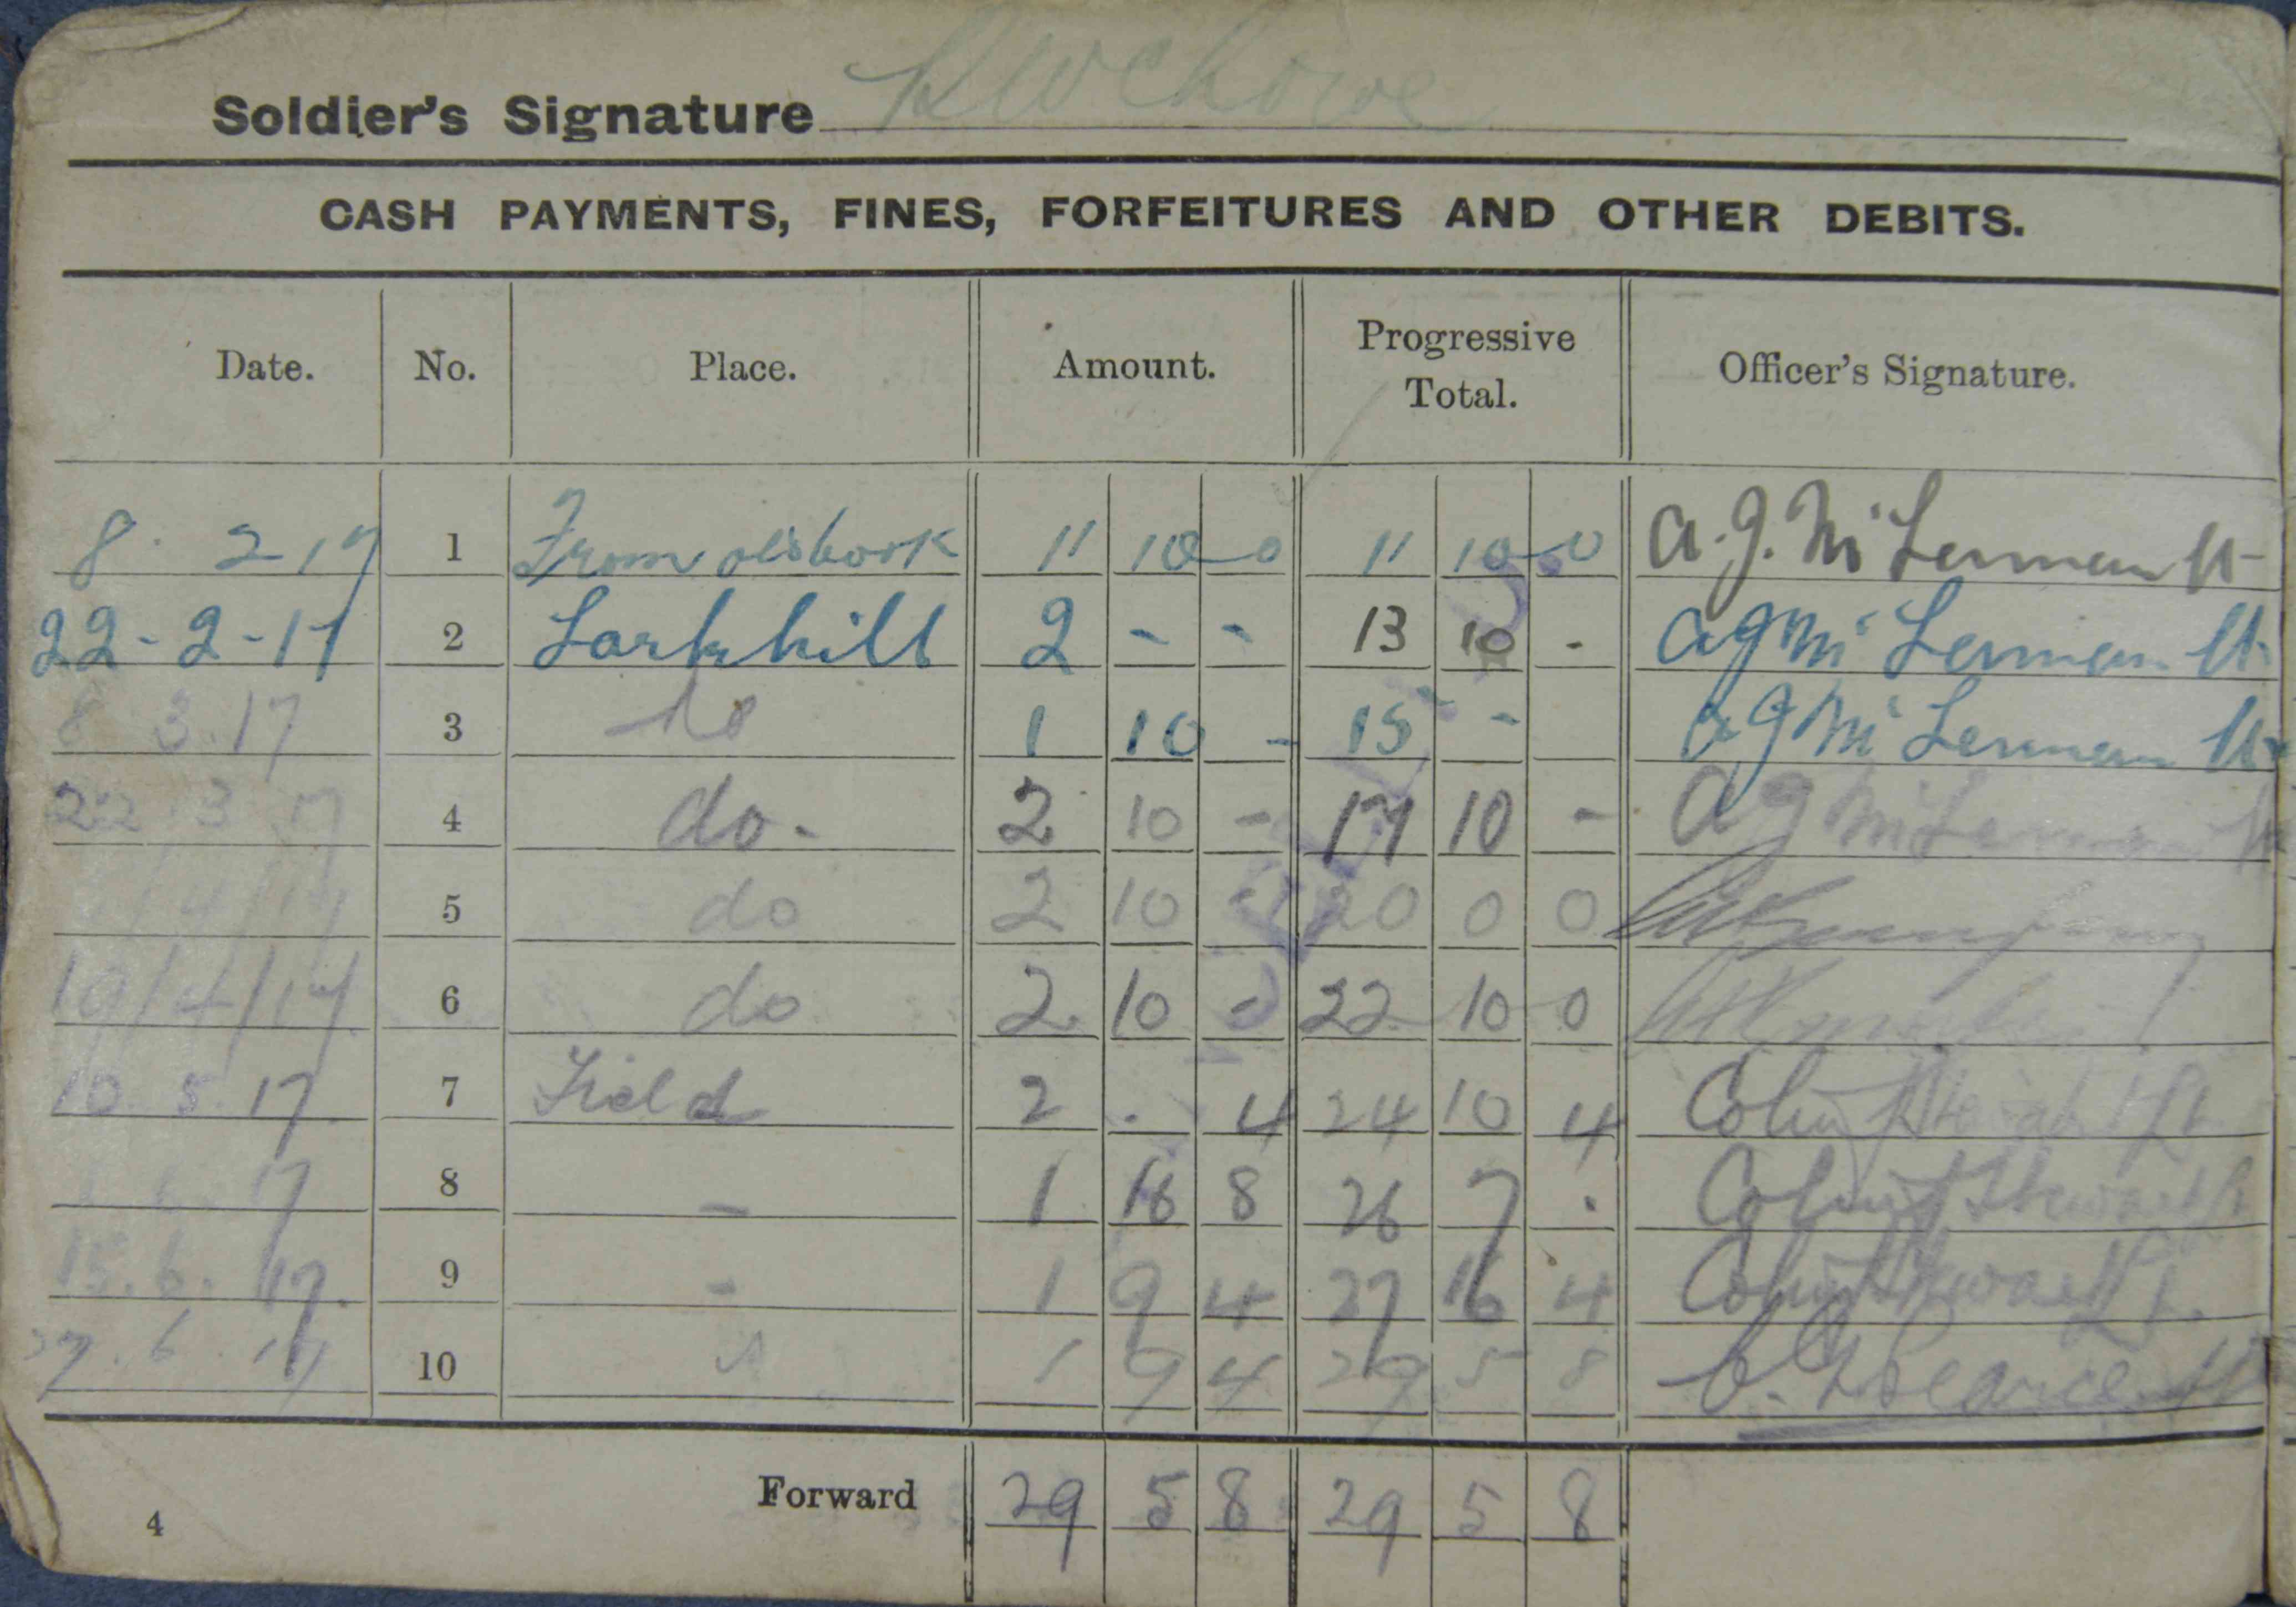 Soldier's Signature
CASH PAYMENTS, FINES, FORFEITURES AND OTHER DEBITS.
Date. No. Place. Amount. Progressive Total. Officer's Signature.
8. 2 17 1 From old book 11 10 0 11 10 0 A. G. Mc Lennan Lt
22-2-17 2 Larkhill 2 - - 13 10 - A G Mc Lennan Lt
8 3.17 3 do 1 10 - 15 - A G Mc Lennan Lt
22 . 3 17 4 do - 2 10 - 17 10 - A G Mc Lennan Lt
/4/17 5 do 2 10 - 20 0 0
19/4/17 6 do 2 10 - 22 10 0
10. 5. 17 7 Field 2 . 4 24 10 4 Colin Stewart Lt
6. 17 8 - 1 16 8 26 7 . Colin Stewart Lt
15. 6. 17. 9 - 1 9 4 27 16 4 Colin Stewart Lt.
27. 6. 17 10 1 9 4 29 5 8 Pearce Lt
Forward 29 5 8 29 5 8
4